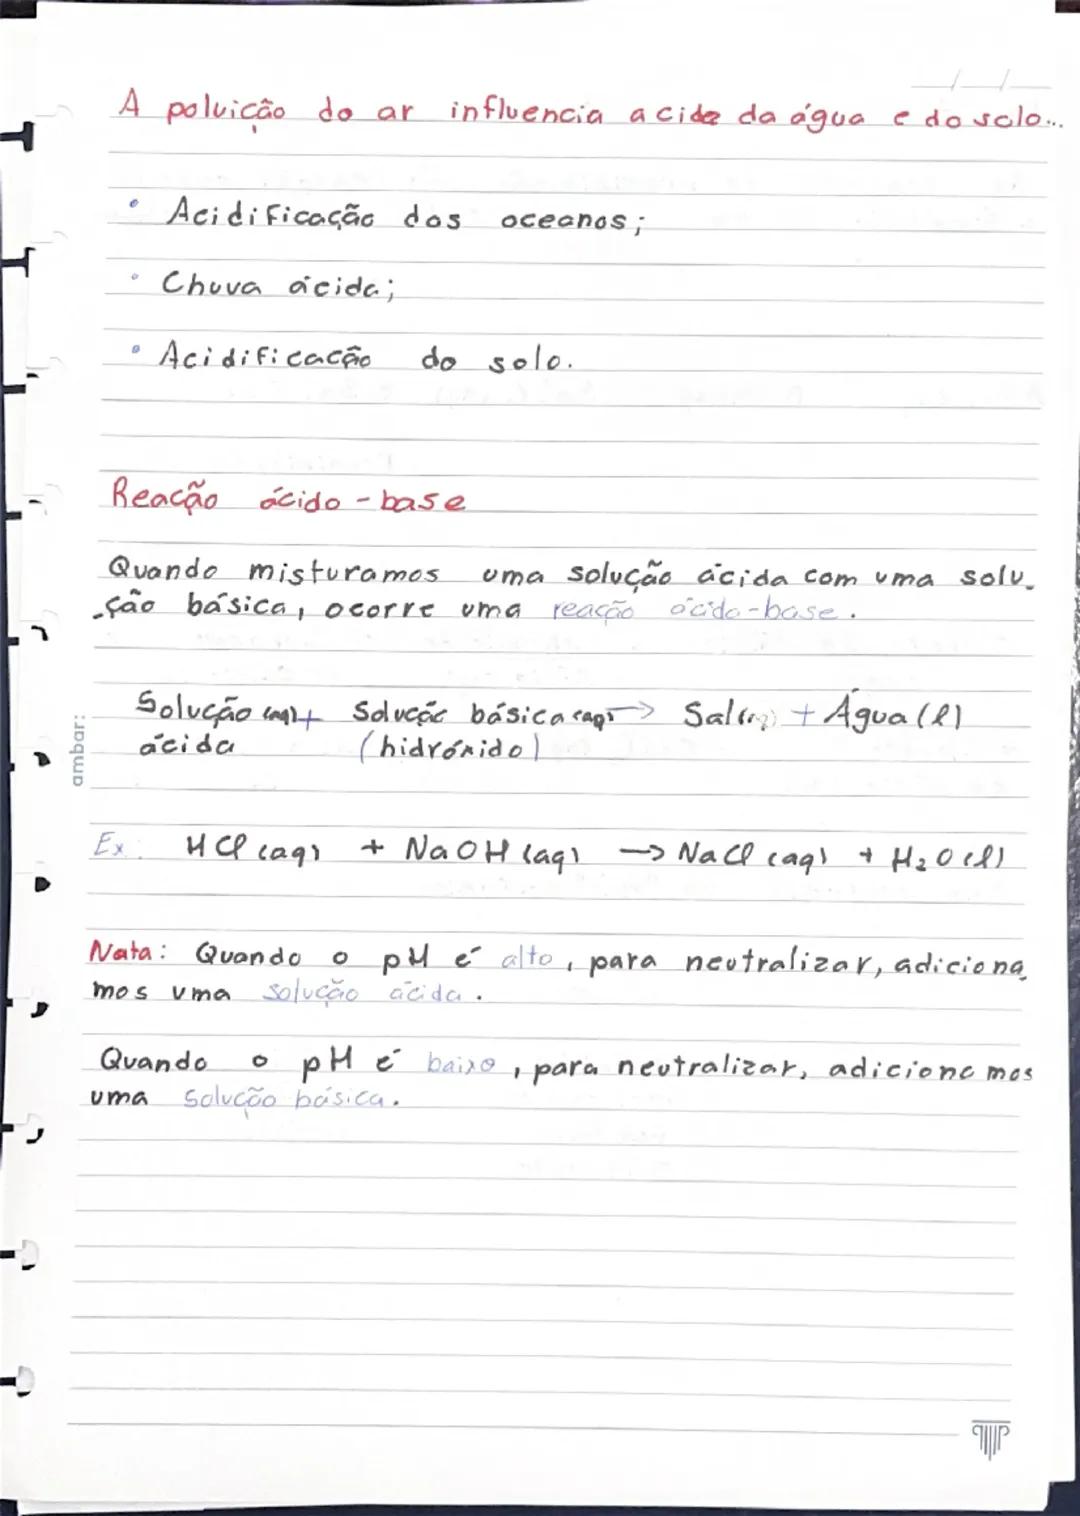 A poluição do ar influencia acidez da água e do solo...
• Acidificação dos oceanos;
• Chuva ácida;
• Acidificação do solo.
Reacão ácido-base
Quando misturamos uma solução ácida com uma solu_
_ção básica, ocorre uma reação ácido-base.
Solução (aq) + Solução básica (aq) → Sal (aq) + Água (l)
ácida (hidróxido)
ambar:
Ex: HCl (aq) + NaOH (aq) → NaCl (aq) + H₂O (l)
Nota: Quando o pH é alto, para neutralizar, adiciona_
mos uma solução ácida.
Quando o pH é baixo, para neutralizar, adicionamos
uma solução básica.